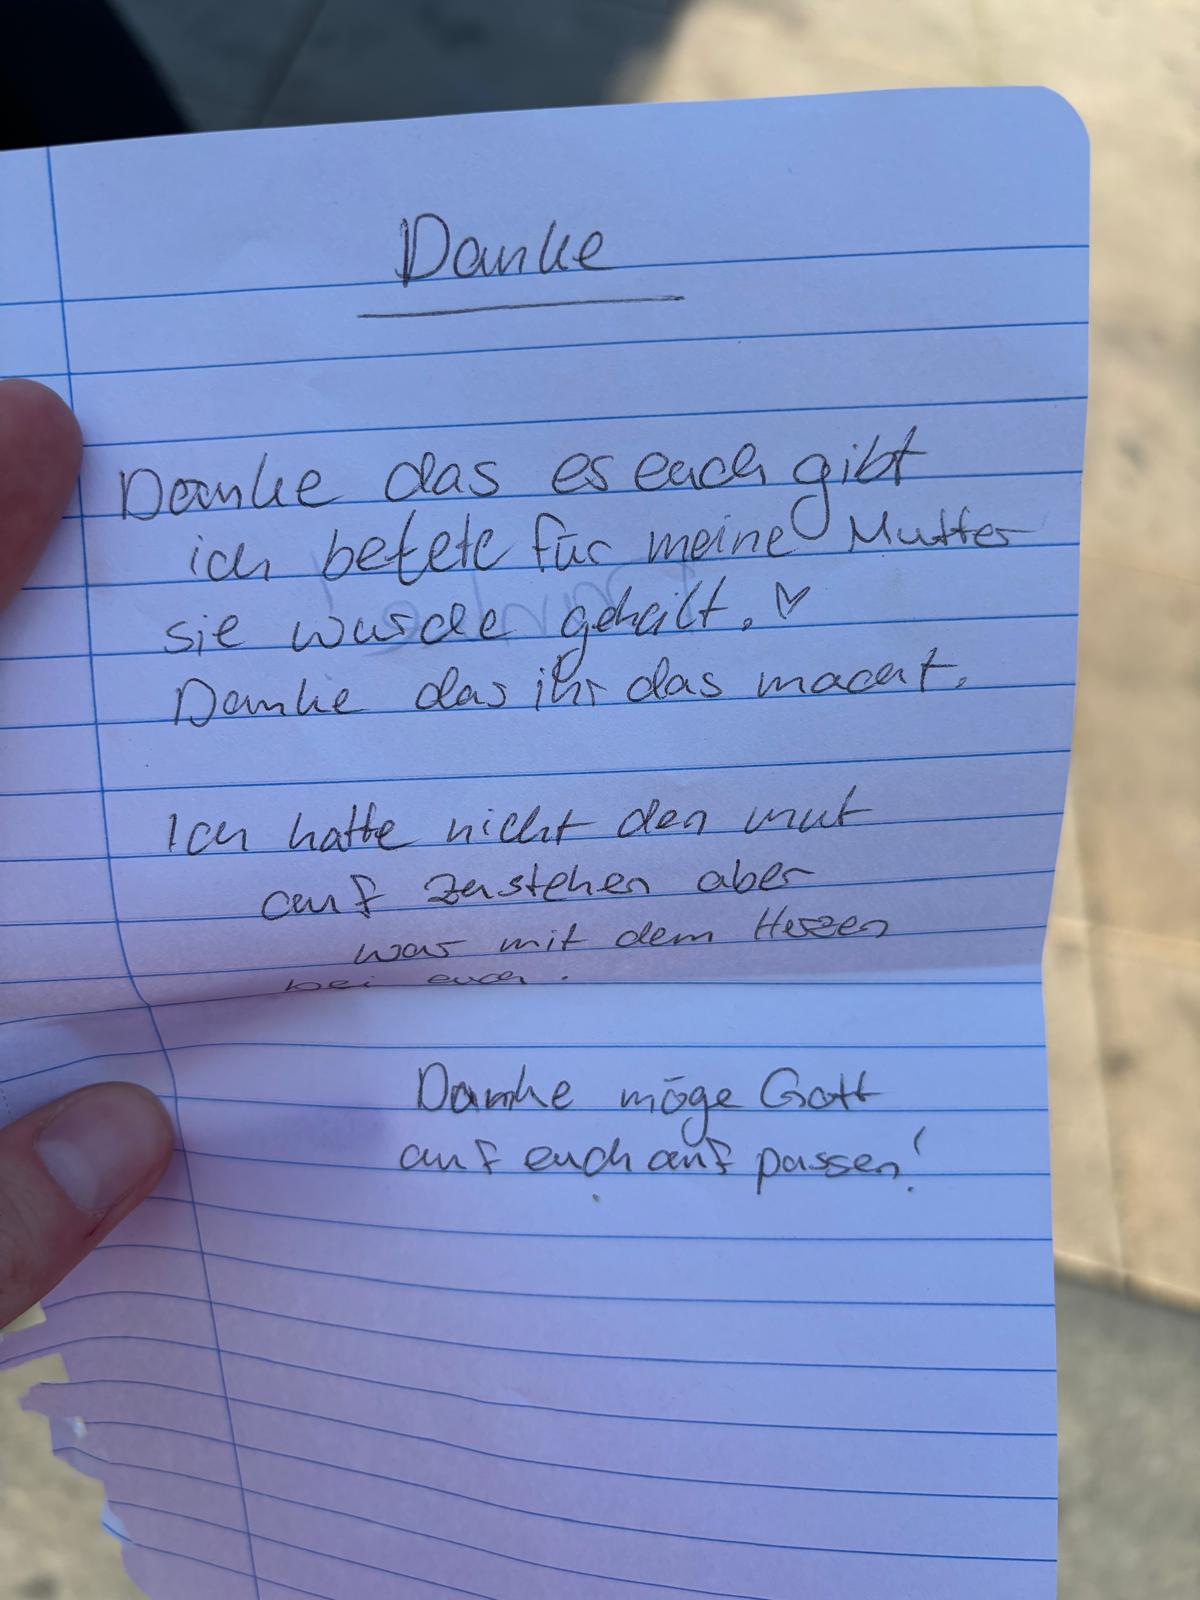 Danke
Danke das es euch gibt
ich betete für meine Mutter
sie wurde geheilt. ♡
Danke das ihr das macht.
Ich hatte nicht den mut
auf zustehen aber
war mit dem Herzen
bei euch.
Danke möge Gott
auf euch auf passen!